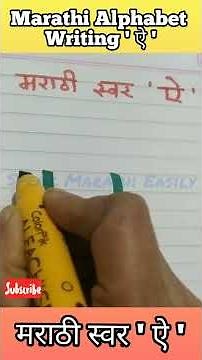 Marathi Alphabet
Writing ' ऐ '
मराठी स्वर ' ऐ '
Marathi Easily
Subscribe
मराठी स्वर ' ऐ '